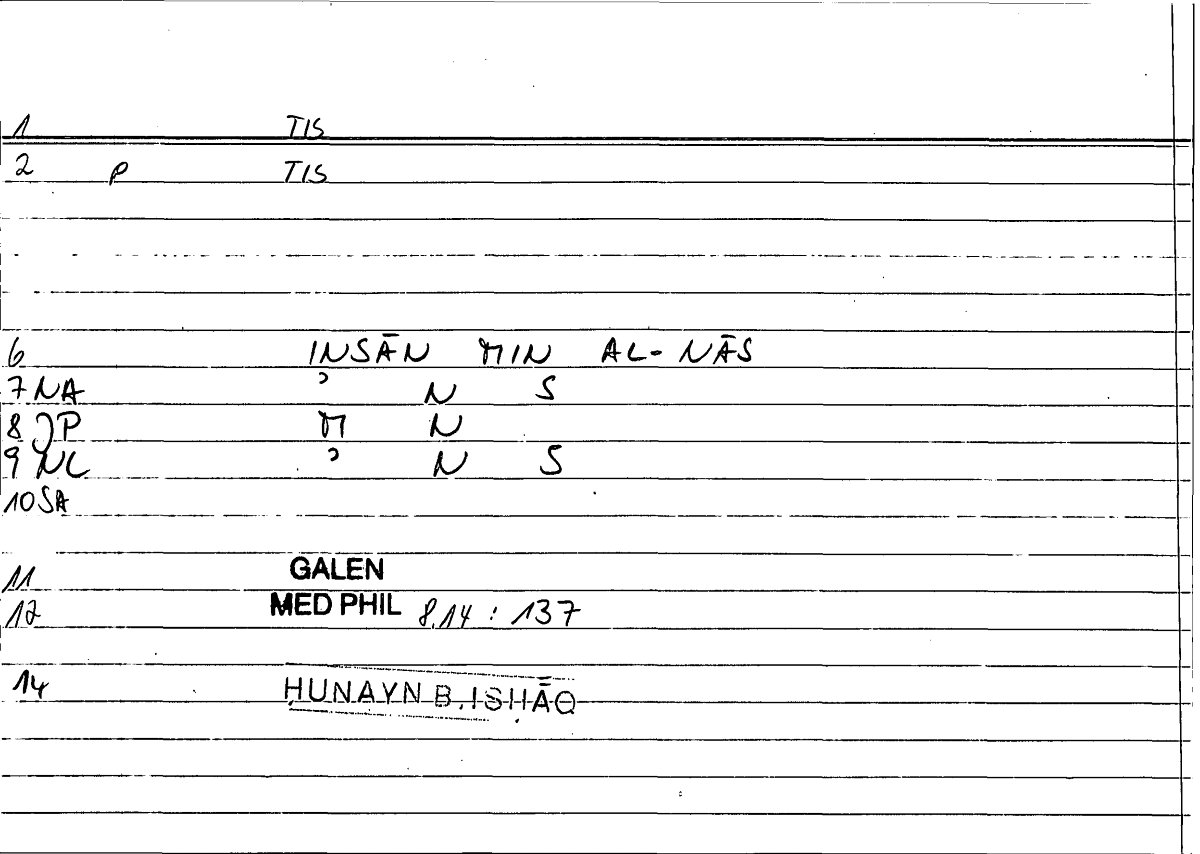 1 TIS
2 P TIS
6 INSĀN MIN AL-NĀS
7 NA ʾ N S
8 JP M N
9 NL ʾ N S
10 SA
11 GALEN
12 MED PHIL 8.14 : 137
14 ḤUNAYN B. ISḤĀQ